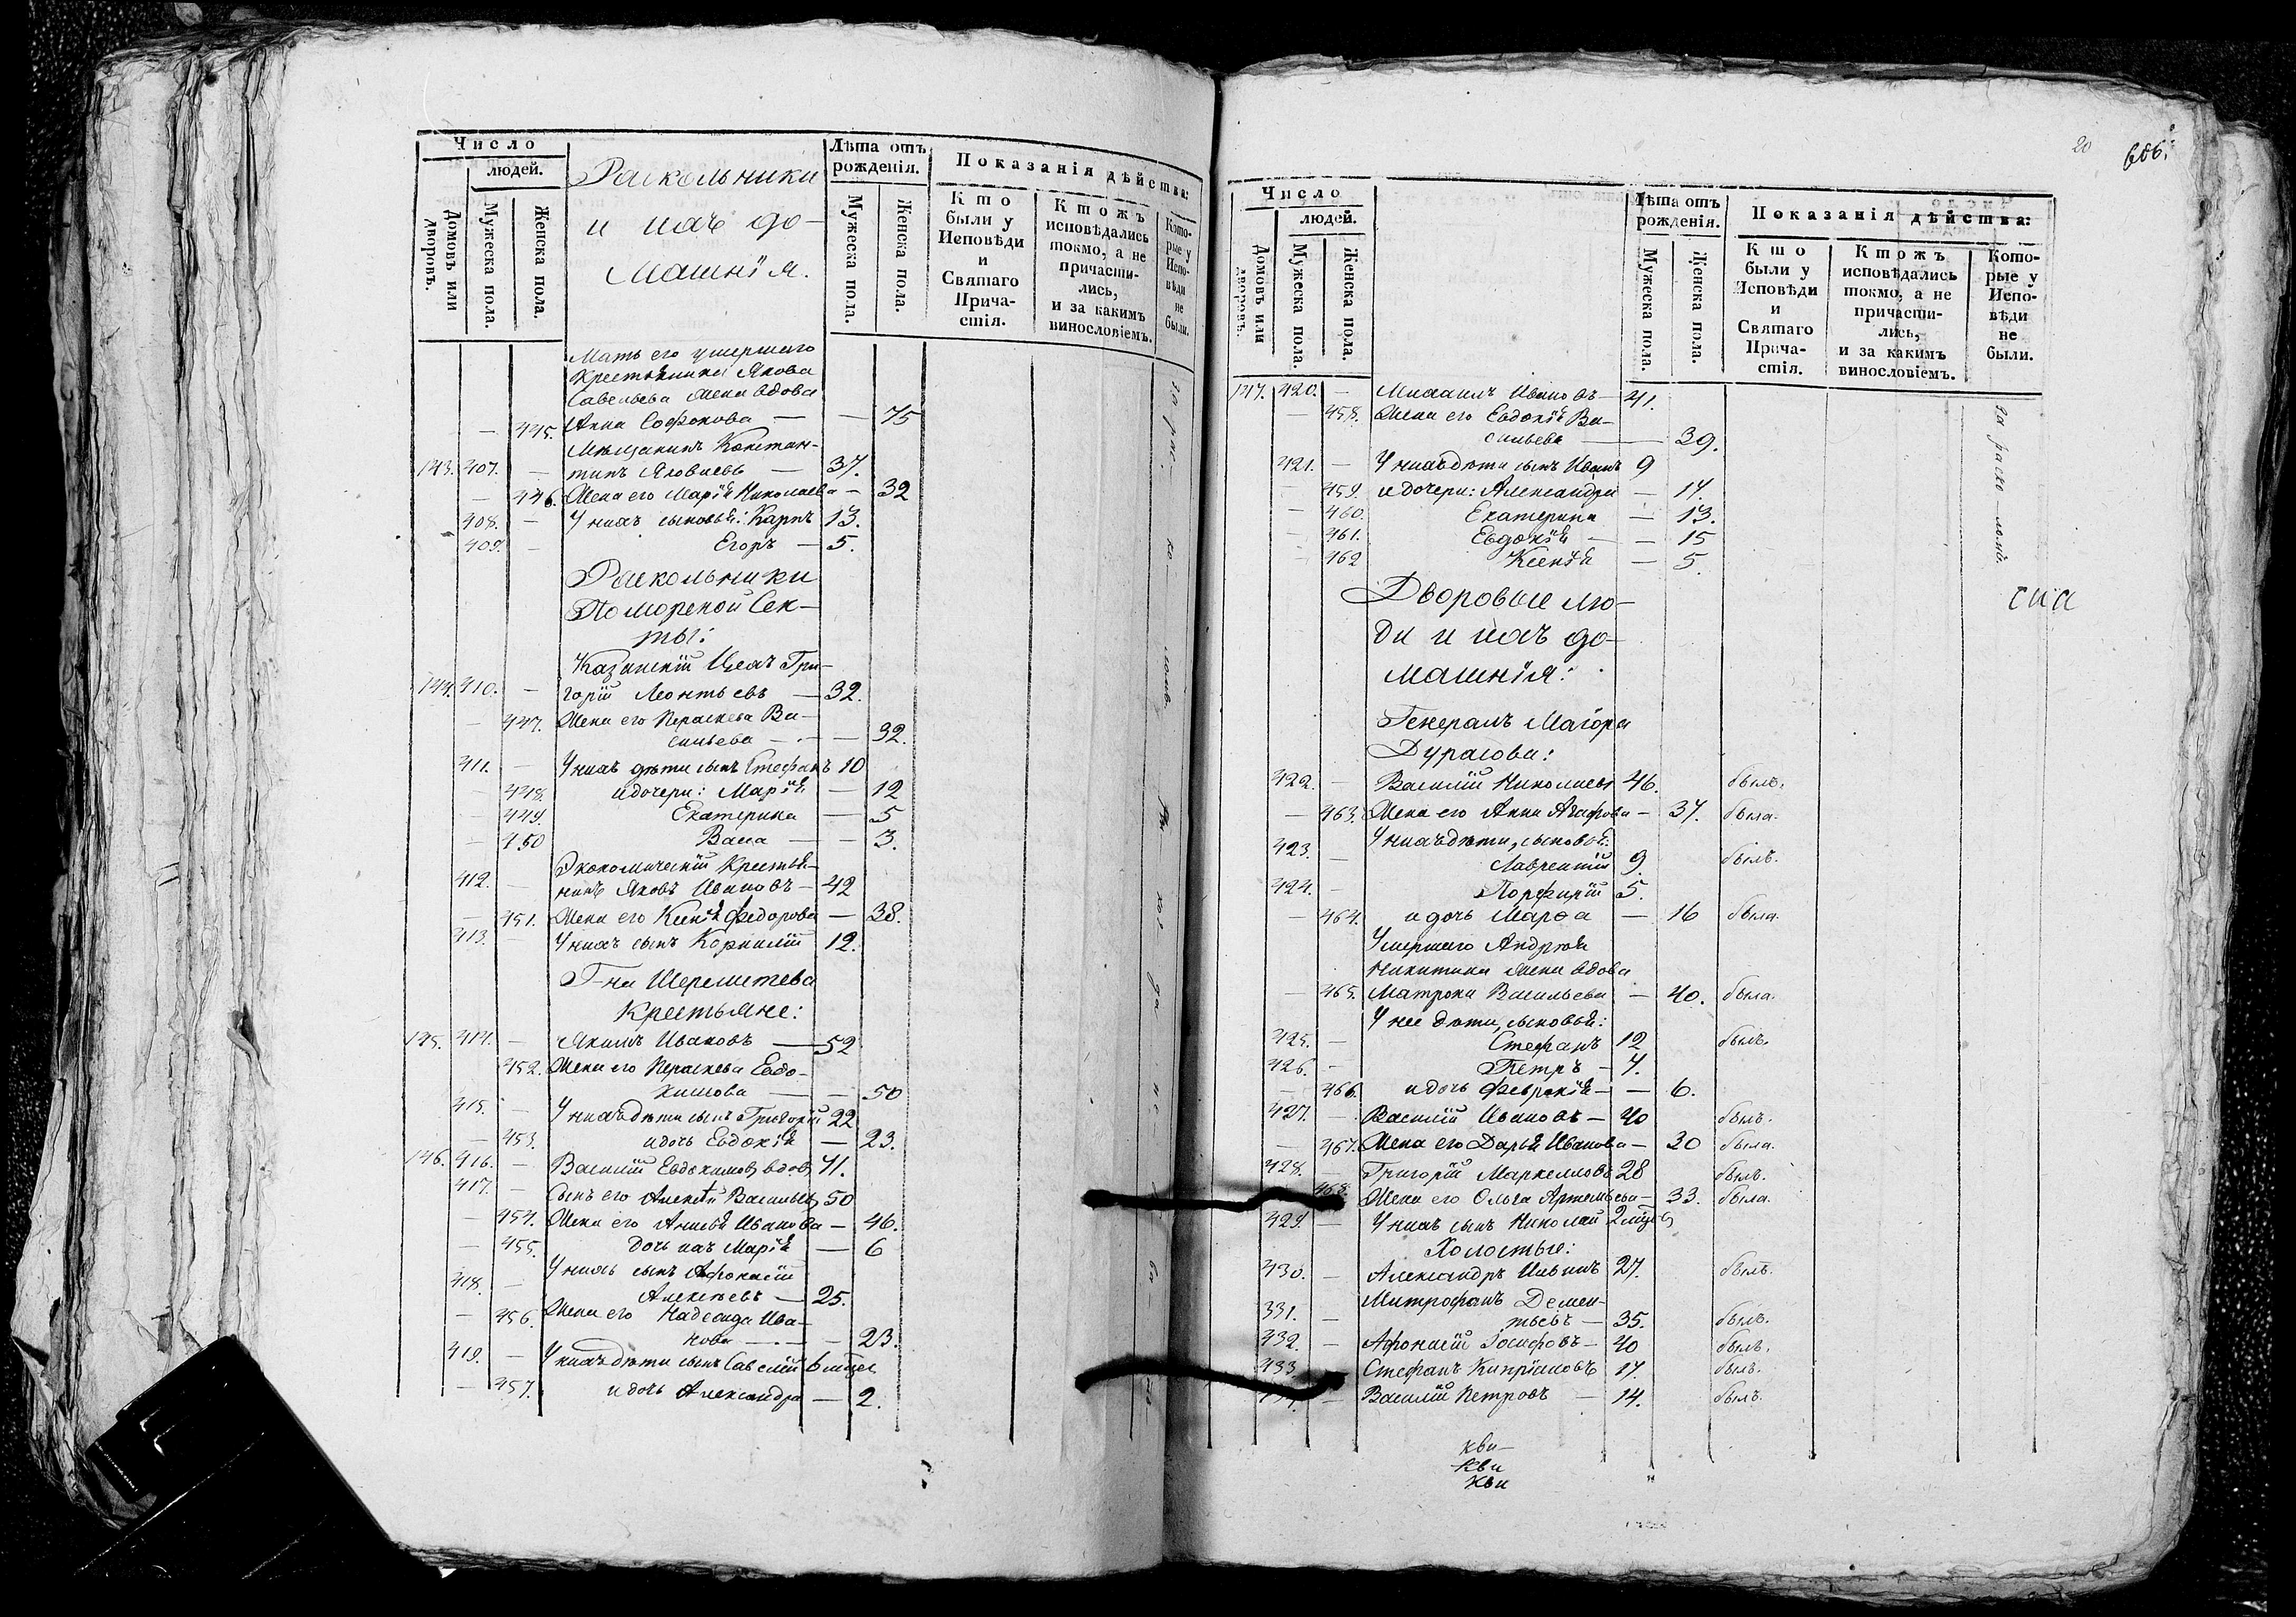 Число
людей.
Домовъ или дворовъ.
Мужеска пола.
Женска пола.
Раскольники
и ихъ до-
машнія.
Лѣта отъ рожденія.
Мужеска пола.
Женска пола.
Показанія дѣйства:
Кто были у Исповѣди и Святаго Прича-стія.
Ктожъ исповѣдались токмо, а не причасти-лись, и за какимъ винословіемъ.
Кото-рые у Испо-вѣди не были.
Мать его умершаго
Крестьянина Якова
Савельева жена вдова
— 445. Анна Софонова — — 75
Мѣщанинъ Констан-
143. 407. — тинъ Яковлевъ — 37.
— 446. Жена его Марія Николаева — 32
408. — У нихъ сыновья: Карпъ 13.
409. — Егоръ — 5.
Раскольники
Поморской Сек-
ты:
Казанскій Цехъ Гри-
144. 410. — горій Леонтьевъ — 32.
— 447. Жена его Параскева Ва-
сильева — — 32.
411. — У нихъ дѣти сынъ Стефанъ 10
— 448. и дочери: Марія — 12
— 449. Екатерина — 5
— 450 Васса — — 3.
Экономическій Крестья-
412. — нинъ Яковъ Ивановъ — 42
— 451. Жена его Ксенія Федорова — 38.
413. — У нихъ сынъ Корнилій 12.
Г-на Шереметева
Крестьяне:
145. 414. — Якимъ Ивановъ — 52
452. Жена его Параскева Евдо-
кимова — — 50
415. — У нихъ дѣти сынъ Григорій 22
— 453. и дочь Евдокія — 23.
146. 416. — Василій Евдокимовъ вдовъ 71.
417. — Сынъ его Алексѣй Васильевъ 50
— 454. Жена его Анисья Иванова — 46.
— 455. дочь ихъ Марія — 6
У нихъ сынъ Афонасій
418. — Алексѣевъ — 25.
— 456. Жена его Надежда Ива-
нова — — 23.
419. — У нихъ дѣти сынъ Савелій 6 мцов
— 457. и дочь Александра — 2.
20 606.
Число
людей.
Домовъ или дворовъ.
Мужеска пола.
Женска пола.
Лѣта отъ рожденія.
Мужеска пола.
Женска пола.
Показанія дѣйства:
Кто были у Исповѣди и Святаго Прича-стія.
Ктожъ исповѣдались токмо, а не причасти-лись, и за какимъ винословіемъ.
Кото-рые у Испо-вѣди не были.
147. 420. — Михаилъ Ивановъ — 41.
— 458. Жена его Евдокія Ва-
сильева — 39.
421. — У нихъ дѣти сынъ Иванъ 9
— 459. и дочери: Александра — 17.
— 460. Екатерина — 13.
— 461. Евдокія — — 15
— 462 Ксенія — 5.
за раско ломъ.
Дворовые лю-
ди и ихъ до-
машнія:
Генералъ Маіора
Дурасова:
422. — Василій Николаевъ 46. былъ.
— 463. Жена его Анна Агафова — 37. была.
У нихъ дѣти, сыновья:
423. — Лаврентій 9. былъ.
424. — Порфирій 5.
— 464. и дочь Марѳа — 16 была.
Умершаго Андрея
Никитина жена вдова
— 465. Матрона Васильева — 40. была.
У нее дѣти, сыновья:
425. — Стефанъ 12 былъ.
426. — Петръ — 7.
— 466. и дочь Февронія — — 6.
427. — Василій Ивановъ — 40 былъ.
— 467. Жена его Дарья Иванова — 30 была.
428. — Григорій Маркелловъ 28 былъ.
468. Жена его Ольга Артемьева — 33. была.
429. — У нихъ сынъ Николай 2 мцов
Холостые:
430. — Александръ Ильинъ 27. былъ.
Митрофанъ Демен-
331. — тьевъ — 35. былъ.
432. — Афонасій Іосифовъ — 40 былъ.
433. Стефанъ Кипріановъ 17. былъ.
— Василій Петровъ — 14. былъ.
кви-
кви
кви